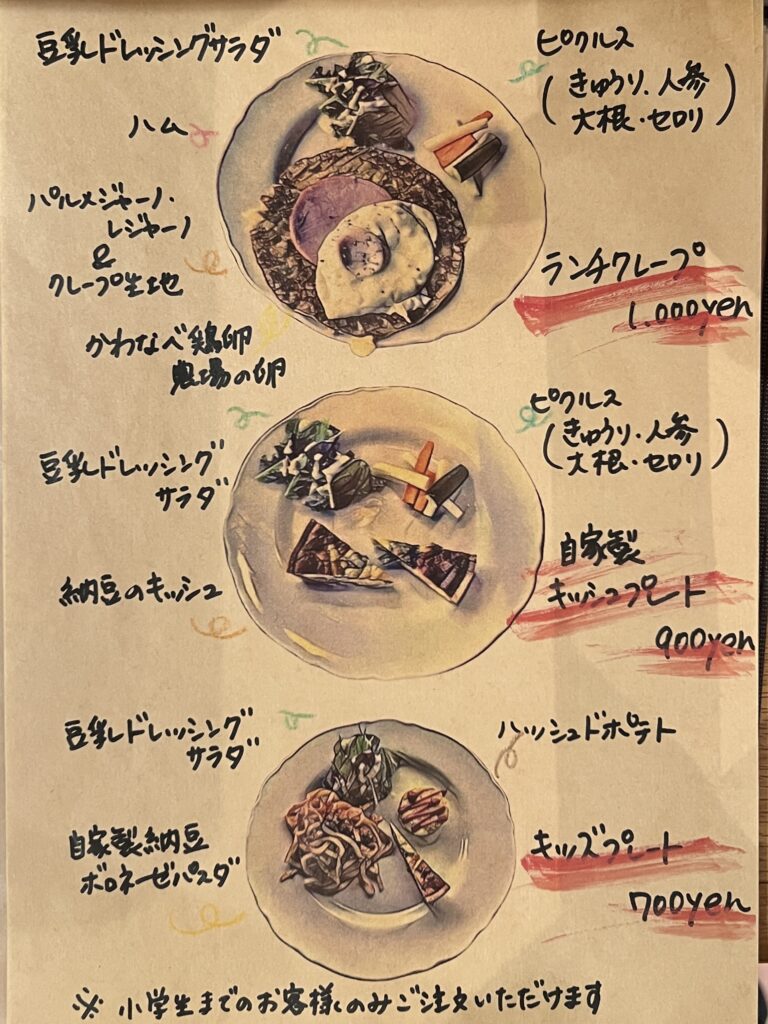 豆乳ドレッシングサラダ
ハム
パルメジャーノ・
レジャーノ
&
クレープ生地
かわなべ鶏卵
農場の卵
ピクルス
(きゅうり、人参
大根・セロリ)
ランチクレープ
1.000yen
豆乳ドレッシング
サラダ
納豆のキッシュ
ピクルス
(きゅうり・人参
大根・セロリ)
自家製
キッシュプレート
900yen
豆乳ドレッシング
サラダ
自家製納豆
ボロネーゼパスタ
ハッシュドポテト
キッズプレート
700yen
※ 小学生までのお客様のみご注文いただけます